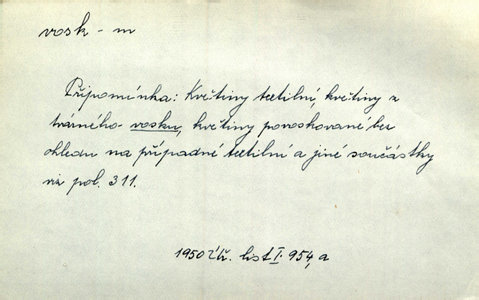 vosk - m
Připomínka: Květiny textilní, květiny z
tvárného vosku, květiny povoskované bez
ohledu na případné textilní a jiné součástky
viz pol. 311.
1950 Úř. list I. 954, a